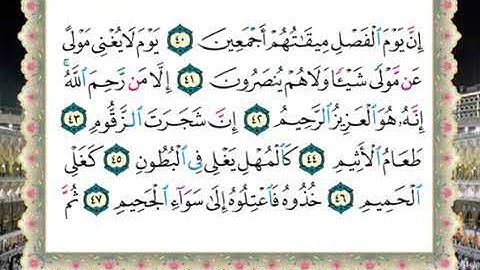 إِنَّ يَوْمَ ٱلْفَصْلِ مِيقَٰتُهُمْ أَجْمَعِينَ ٤٠ يَوْمَ لَا يُغْنِى مَوْلًى
عَن مَّوْلًى شَيْـًٔا وَلَا هُمْ يُنصَرُونَ ٤١ إِلَّا مَن رَّحِمَ ٱللَّهُ ۚ
إِنَّهُۥ هُوَ ٱلْعَزِيزُ ٱلرَّحِيمُ ٤٢ إِنَّ شَجَرَتَ ٱلزَّقُّومِ ٤٣
طَعَامُ ٱلْأَثِيمِ ٤٤ كَٱلْمُهْلِ يَغْلِى فِى ٱلْبُطُونِ ٤٥ كَغَلْىِ
ٱلْحَمِيمِ ٤٦ خُذُوهُ فَٱعْتِلُوهُ إِلَىٰ سَوَآءِ ٱلْجَحِيمِ ٤٧ ثُمَّ